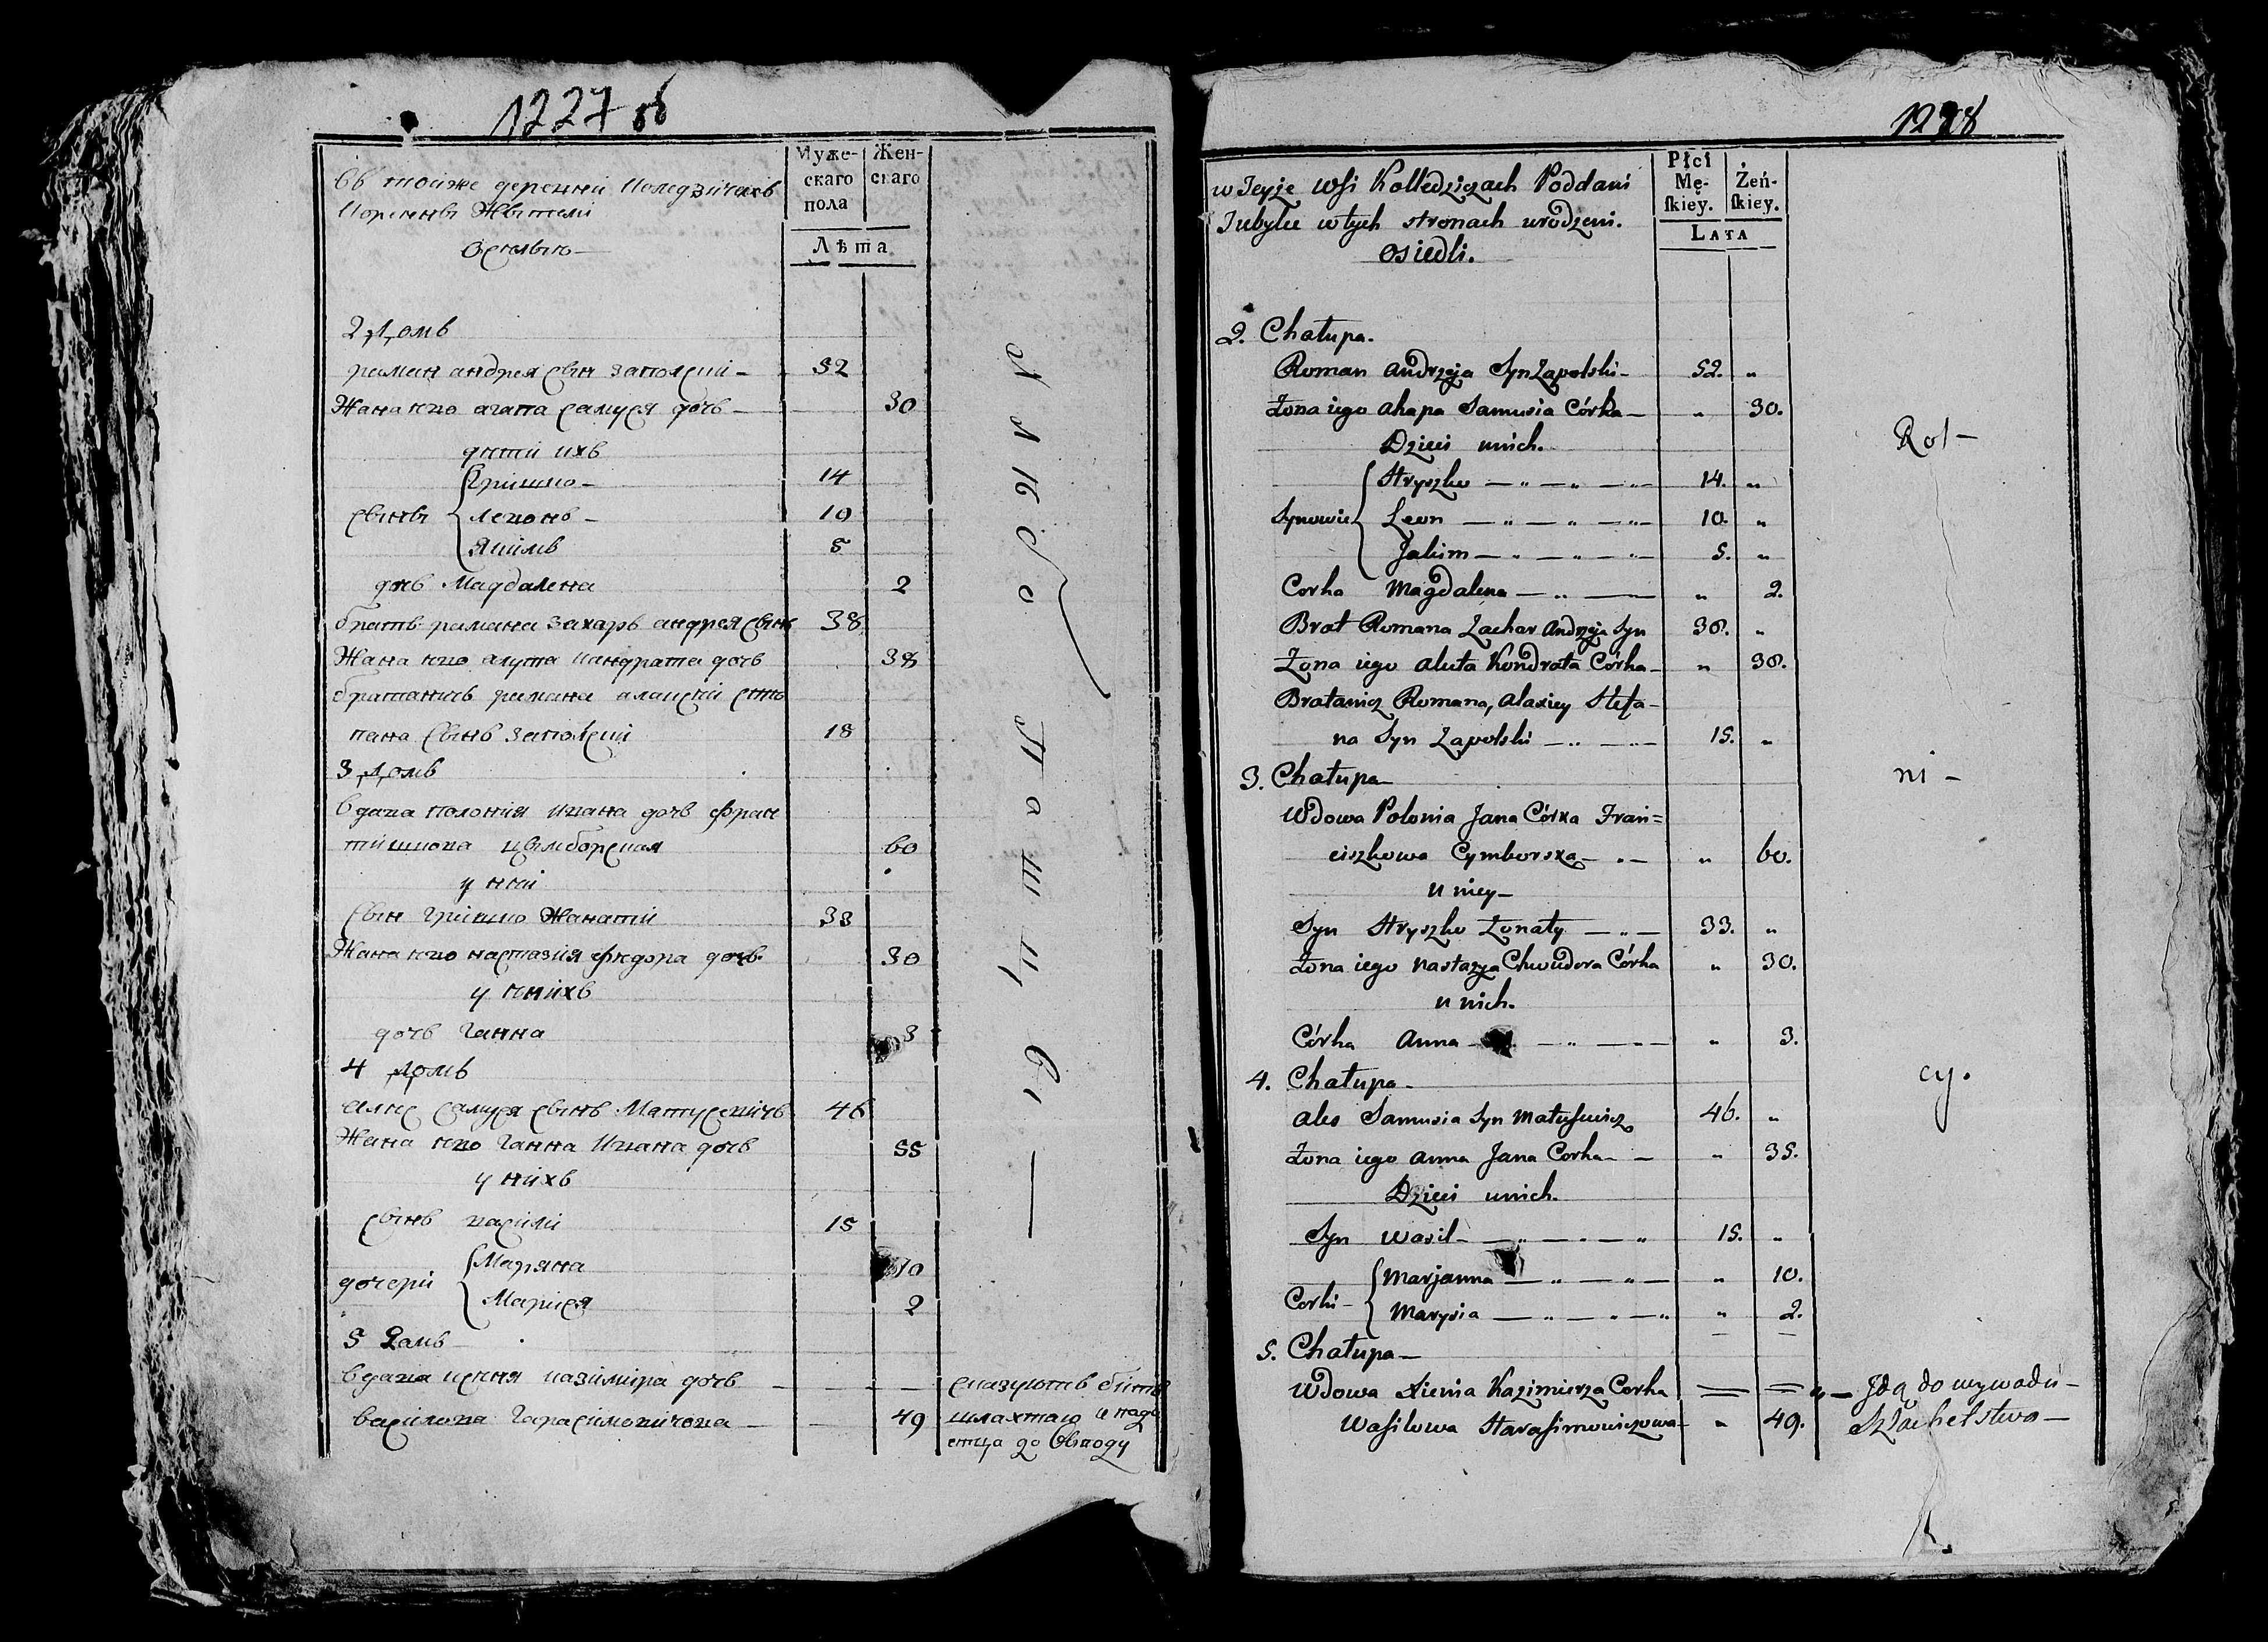 1227 об
Муже-
скаго
пола
Жен-
скаго
Лѣта
въ тойже деревни Коледзичахъ
Коренны Жытели
Оселыю
2 Домъ
раман андрея сын заполски 52
Жана его агапа самуся дочь 30
дѣти ихъ
сыны
Гришко 14
Левонъ 10
Якимъ 5
дочь Магдалена 2
братъ рамана захаръ андрея сынъ 38
Жана его алута кандрата дочь 38
братаничъ рамана алаксѣй сте
пана сынъ заполски 18
3 Домъ
вдава полония ивана дочь фран
тишкова цымборская 60
у ней
сын Гришко Жанатй 33
Жана его настазия федора дочь 30
у нихъ
дочь Ганна 3
4 Домъ
алес самуся сынъ Матусевичъ 46
Жана его Ганна Ивана дочь 55
у нихъ
сынъ васили 15
дочери
Марянa 10
Марися 2
5 Дамъ
вдава ксеня казимира дочь
василова Гарасимовичова 49
сказуютъ быть
шлахтаю и
до выводу
1228
Płci
Mę-
ſkiey.
Żeń-
ſkiey.
LATA
w Teyże wsi Kolledziczach Poddani
Tubylcy w tych stronach urodzeni.
Osiedli.
2. Chałupa.
Roman Andrzeja Syn Zapolski 52. „
Żona iego Ahapa Samusia Córka „ 30.
Dzieci u nich.
Synowie
Hryszko 14. „
Leon 10. „
Jakim 5. „
Corka Magdalena „ 2.
Brat Romana Zachar Andrzeja Syn 38. „
Żona iego Aluta Kondrata Córka „ 38.
Bratanicz Romana, Alaxiey Stefa-
na Syn Zapolski 18. „
3. Chałupa
Wdowa Polonia Jana Córka Fran=
ciszkowa Cymborska „ 60.
u niey
Syn Hryszko Żonaty 33. „
Żona iego Nastazya Chwedora Córka „ 30.
u nich.
Córka Anna „ 3.
4. Chałupa
Ales Samusia Syn Matusewicz 46. „
Żona iego Anna Jana Corka „ 35.
Dzieci u nich.
Syn Wasil 15. „
Corki
Marjanna „ 10.
Marysia „ 2.
5. Chałupa
Wdowa Xienia Kazimierza Corka
Wasilowa Harasimowiczowa „ 49.
Rol-
ni-
cy.
Jdą do wywodu
Szlachetstwa